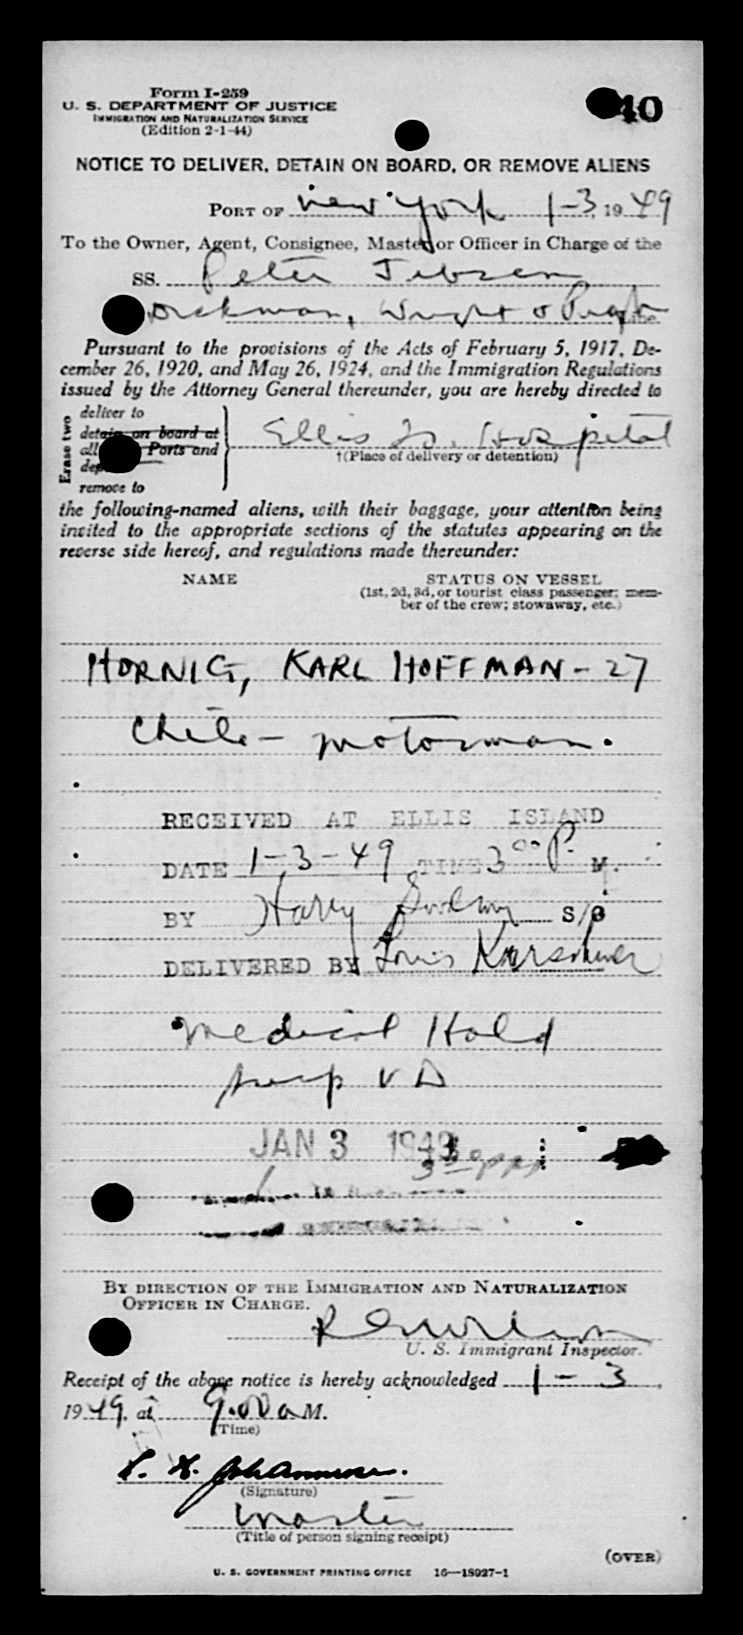 Form I-259
U. S. DEPARTMENT OF JUSTICE
IMMIGRATION AND NATURALIZATION SERVICE
(Edition 2-1-44)
40
NOTICE TO DELIVER, DETAIN ON BOARD, OR REMOVE ALIENS
PORT OF New York 1-3, 1949
To the Owner, Agent, Consignee, Master or Officer in Charge of the
SS. Peter Jebsen
Dickman, Wright & Pugh
Pursuant to the provisions of the Acts of February 5, 1917, De-
cember 26, 1920, and May 26, 1924, and the Immigration Regulations
issued by the Attorney General thereunder, you are hereby directed to
Erase two
deliver to
detain on board at
all Ports and
remove to
Ellis Is. Hospital
†(Place of delivery or detention)
the following-named aliens, with their baggage, your attention being
invited to the appropriate sections of the statutes appearing on the
reverse side hereof, and regulations made thereunder:
NAME STATUS ON VESSEL
(1st, 2d, 3d, or tourist class passenger; mem-
ber of the crew; stowaway, etc.)
HORNIG, KARL HOFFMAN - 27
Chile - motorman.
RECEIVED AT ELLIS ISLAND
DATE 1-3-49 TIME 3 00 P. M.
BY Harry S/G
DELIVERED BY Louis
Medical Hold
susp VD
JAN 3 1949
BY DIRECTION OF THE IMMIGRATION AND NATURALIZATION
OFFICER IN CHARGE.
U. S. Immigrant Inspector.
Receipt of the above notice is hereby acknowledged 1 - 3,
1949, at 9.00 a M.
(Time)
(Signature)
Master
(Title of person signing receipt)
(OVER)
U. S. GOVERNMENT PRINTING OFFICE 16—18927-1